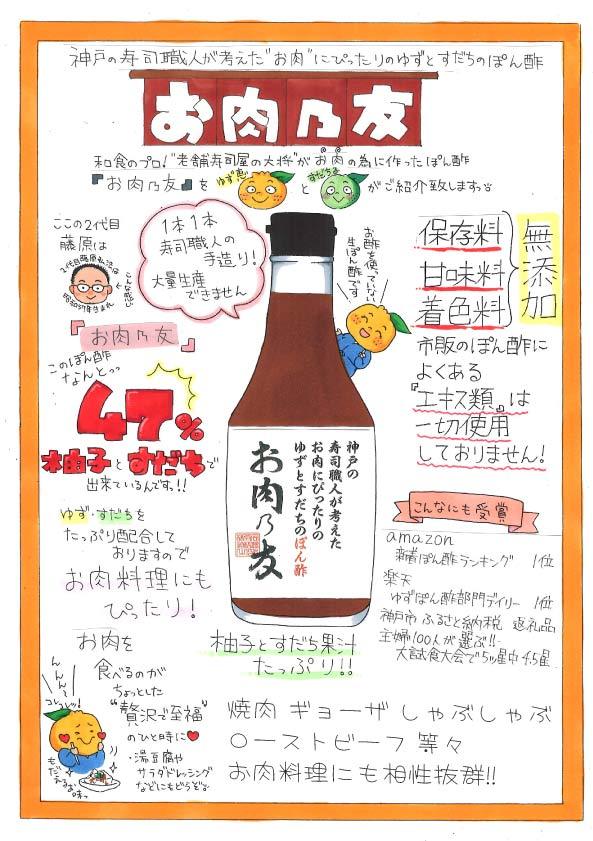 神戸の寿司職人が考えた"お肉"にぴったりのゆずとすだちのぽん酢
お肉乃友
和食のプロ!"老舗寿司屋の大将"がお肉の為に作ったぽん酢
『お肉乃友』を ゆず恵 と すだちま がご紹介致します
ここの2代目
藤原は
2代目藤原弘治は
こんな感じ
昭和57年生まれ
1本1本
寿司職人の
手造り!
大量生産
できません
お酢を使っていない
生ぽん酢です
保存料
甘味料
着色料
無添加
市販のぽん酢に
よくある
『エキス類』は
一切使用
しておりません!
『お肉乃友』
このぽん酢
なんとっっ
47%
柚子とすだちで
出来ているんです!!
ゆず・すだちを
たっぷり配合して
おりますので
お肉料理にも
ぴったり!
神戸の
寿司職人が考えた
お肉にぴったりの
ゆずとすだちのぽん酢
お肉乃友
柚子とすだち果汁
たっぷり!!
こんなにも受賞
amazon
新着ぽん酢ランキング 1位
楽天
ゆずぽん酢部門デイリー 1位
神戸市 ふるさと納税 返礼品
主婦100人が選ぶ!!
大試食大会で5ッ星中4.5星
お肉を
食べるのが
ちょっとした
"贅沢で至福"
のひと時に
・湯豆腐や
サラダドレッシング
などにもどうぞ
んんん〜
コレコレッ!
もだえるお味っ
焼肉 ギョーザ しゃぶしゃぶ
ローストビーフ 等々
お肉料理にも相性抜群!!